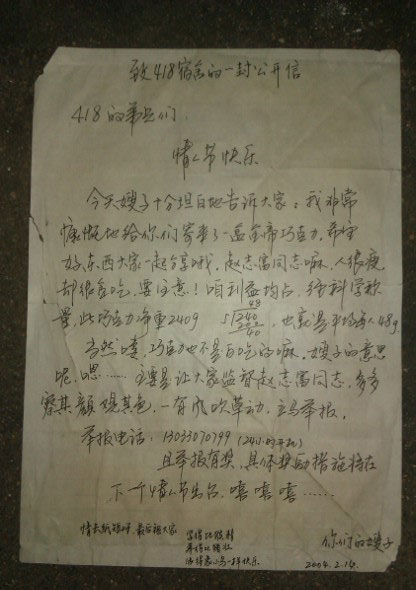 致418宿舍的一封公开信
418的弟兄们:
情人节快乐
今天嫂子十分坦白地告诉大家:我非常
慷慨地给你们寄来了一盒金帝巧克力,希望
好东西大家一起分享哦,赵志富同志嘛,人很瘦
却很贪吃,要注意!咱利益均占,经科学称
量,此巧克力净重240g
48
5 240
200
40
,也就是平均每人48g
当然喽,巧克力也不是白吃的嘛,嫂子的意思
呢,嗯……主要是让大家监督赵志富同志,多多
察其颜观其色,一有风吹草动,立马举报。
举报电话:13033070799(24小时开机)
且举报有奖,具体奖励措施将在
下一个情人节出台,嘻嘻嘻……
情长纸短,最后祝大家
你们的嫂子
2004.2.14.